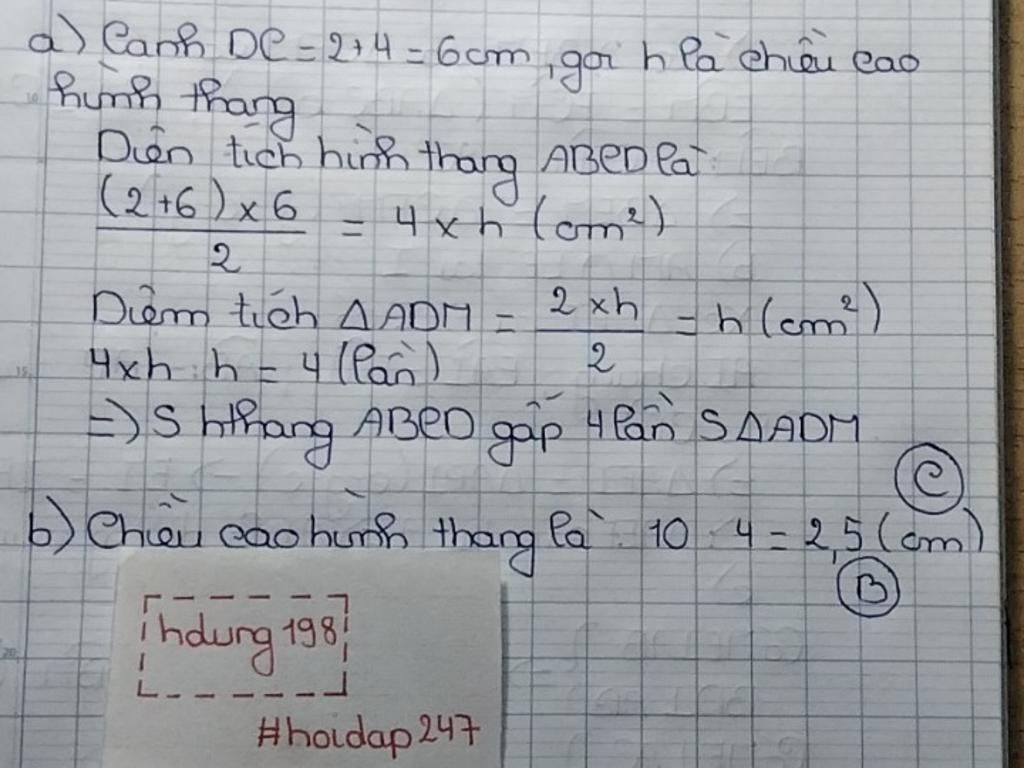 a) Cạnh DC = 2+4 = 6cm, gọi h là chiều cao
hình thang
Diện tích hình thang ABCD là:
(2+6)×6 / 2 = 4×h (cm²)
Diệm tích ΔADM = 2×h / 2 = h (cm²)
4×h : h = 4 (lần)
=> S hthang ABCD gấp 4 lần S ΔADM
C
b) Chiều cao hình thang là: 10 : 4 = 2,5 (cm)
B
hdung198
#hoidap247